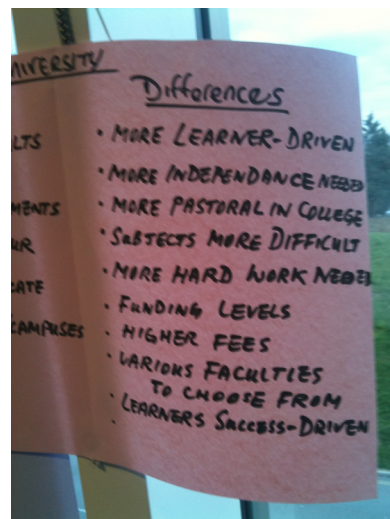 NIVERSITY
LTS
MENTS
UR
ATE
CAMPUSES
Differences
• MORE LEARNER-DRIVEN
• MORE INDEPENDANCE NEEDED
• MORE PASTORAL IN COLLEGE
• SUBJECTS MORE DIFFICULT
• MORE HARD WORK NEEDED
• FUNDING LEVELS
• HIGHER FEES
• VARIOUS FACULTIES
TO CHOOSE FROM
• LEARNERS SUCCESS-DRIVEN
•